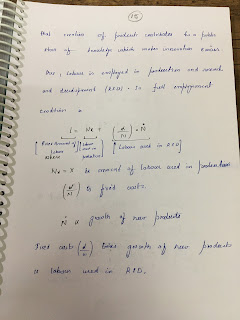 (15)
that creation of products contributes to a public
stock of knowledge which makes innovation easier.
Thus, labour is employed in production and research
and development (R&D). In full employment
condition -
L = Nx + (α/N) · Ṅ
[Fixed Amount of Labour] [Labour used in production] [Labour used in R&D]
Nx = X is amount of labour used in production
(α/N) is fixed costs
Ṅ is growth of new products
Fixed costs (α/N) times growth of new products
is labour used in R&D.